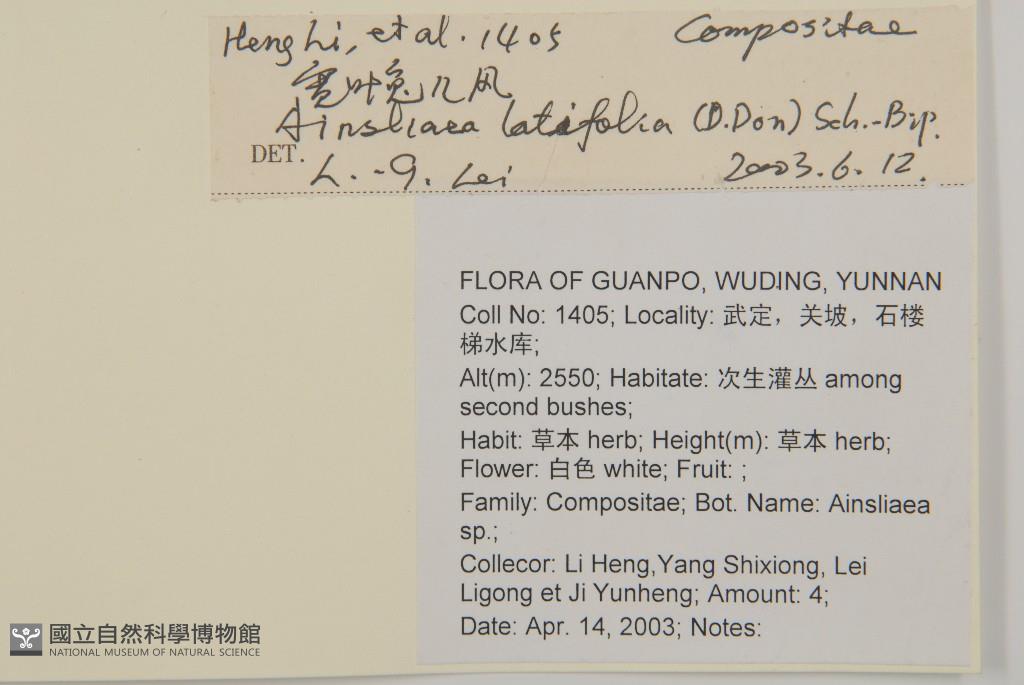 Heng Li, et al. 1405 Compositae
宽叶兔儿风
Ainsliaea latifolia (D.Don) Sch.-Bip.
DET. L.-G. Lei 2003.6.12.
FLORA OF GUANPO, WUDING, YUNNAN
Coll No: 1405; Locality: 武定，关坡，石楼
梯水库;
Alt(m): 2550; Habitate: 次生灌丛 among
second bushes;
Habit: 草本 herb; Height(m): 草本 herb;
Flower: 白色 white; Fruit: ;
Family: Compositae; Bot. Name: Ainsliaea
sp.;
Collecor: Li Heng,Yang Shixiong, Lei
Ligong et Ji Yunheng; Amount: 4;
Date: Apr. 14, 2003; Notes:
國立自然科學博物館
NATIONAL MUSEUM OF NATURAL SCIENCE